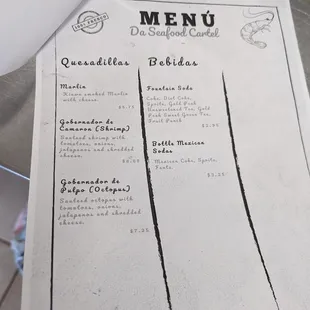 100% FRESCO
MENÚ
Da Seafood Cartel
Quesadillas
Marlin
House smoked Marlin
with cheese.
Gobernador de
Camaron (Shrimp)
Seafood shrimp with
tomatoes, onions,
jalapenos and shredded
cheese.
$6.85
Gobernador de
Pulpo (Octopus)
Seafood octopus with
tomatoes, onions,
jalapenos and shredded
cheese.
$7.25
Bebidas
Fountain Soda
Coke, Diet Coke,
Sprite, Gold Peak
Unsweetened Tea, Gold
Peak Sweet Green Tea,
Fruit Punch
Bottle Mexican
Sodas
Mexican Coke, Sprite,
Fanta
$3.25